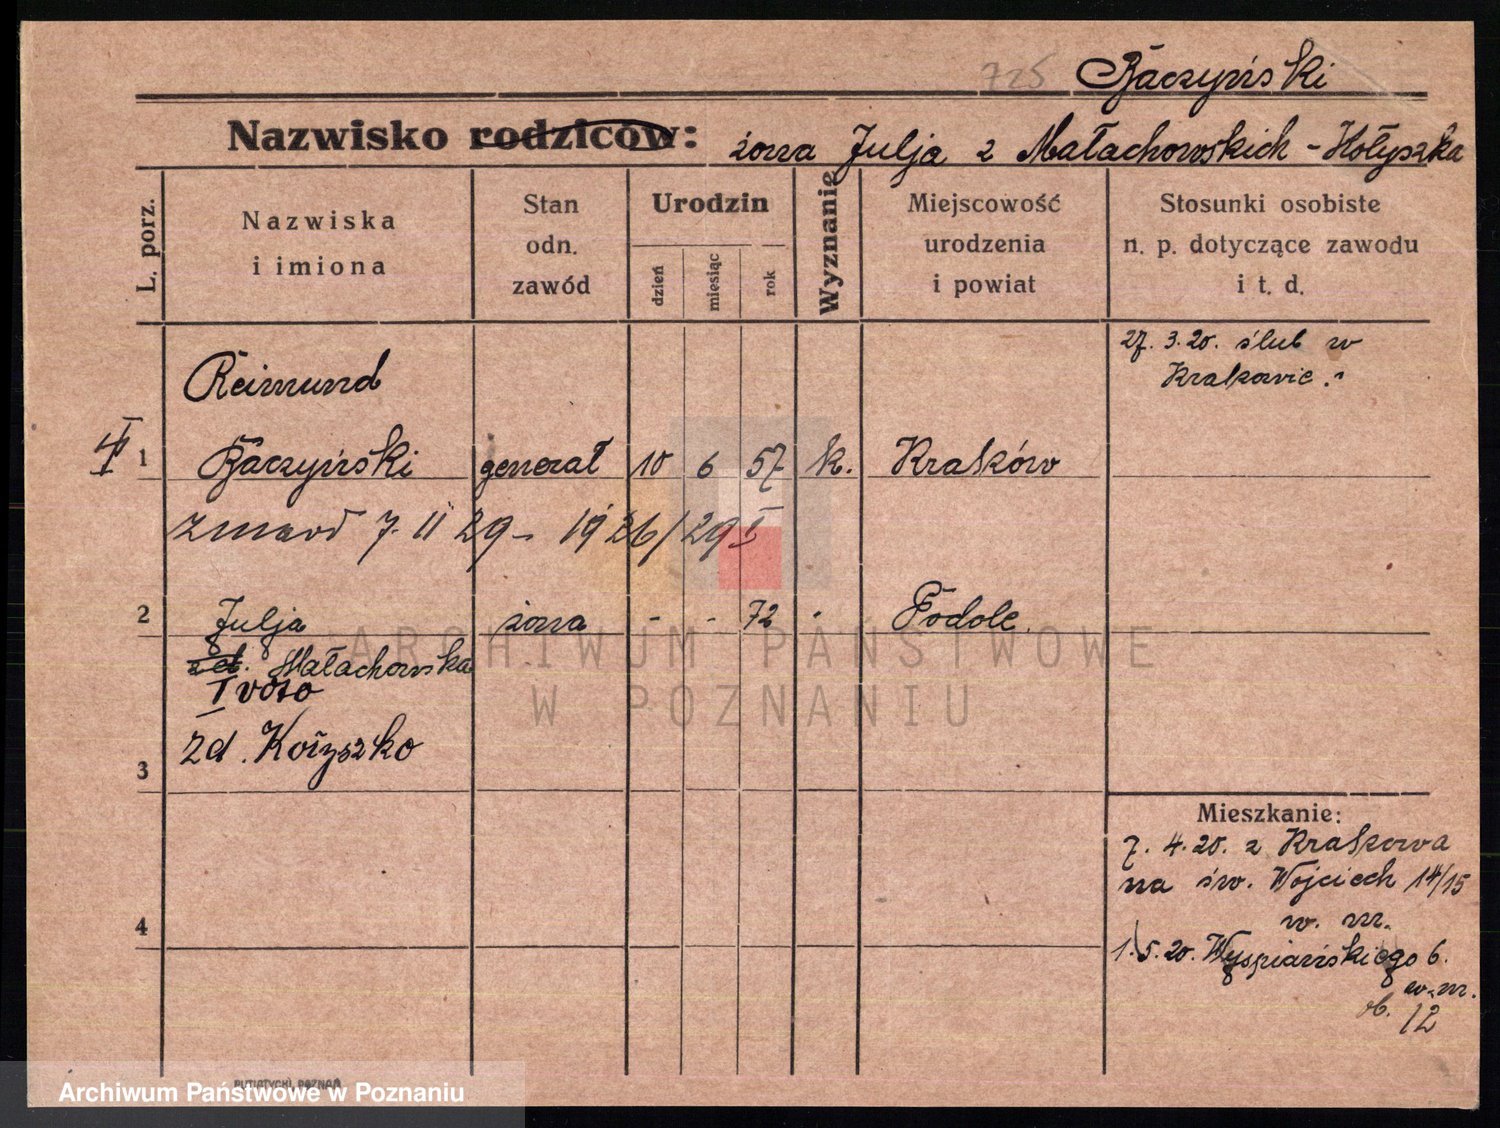 725 Baczyński
Nazwisko rodziców: żona Julja z Małachowskich - Hołyszka
L. porz.
Nazwiska
i imiona
Stan
odn.
zawód
Urodzin
dzień
miesiąc
rok
Wyznanie
Miejscowość
urodzenia
i powiat
Stosunki osobiste
n. p. dotyczące zawodu
i t. d.
27. 3. 20. ślub w
Krakowie.
Reimund
1 Baczyński generał 10 6 57 k. Kraków
zmarł 7. II 29 - 1926/29 I
2 Julja żona - - 72 - Podole.
zd. Małachowska
I voto
zd. Kołyszko
3
4
Mieszkanie:
7. 4. 20. z Krakowa
na św. Wojciech 14/15
w. m.
1. 5. 20. Wyspiańskiego 6.
w. m.
ob. 12
PUTIATYCKI, POZNAŃ
ARCHIWUM PAŃSTWOWE
W POZNANIU
Archiwum Państwowe w Poznaniu